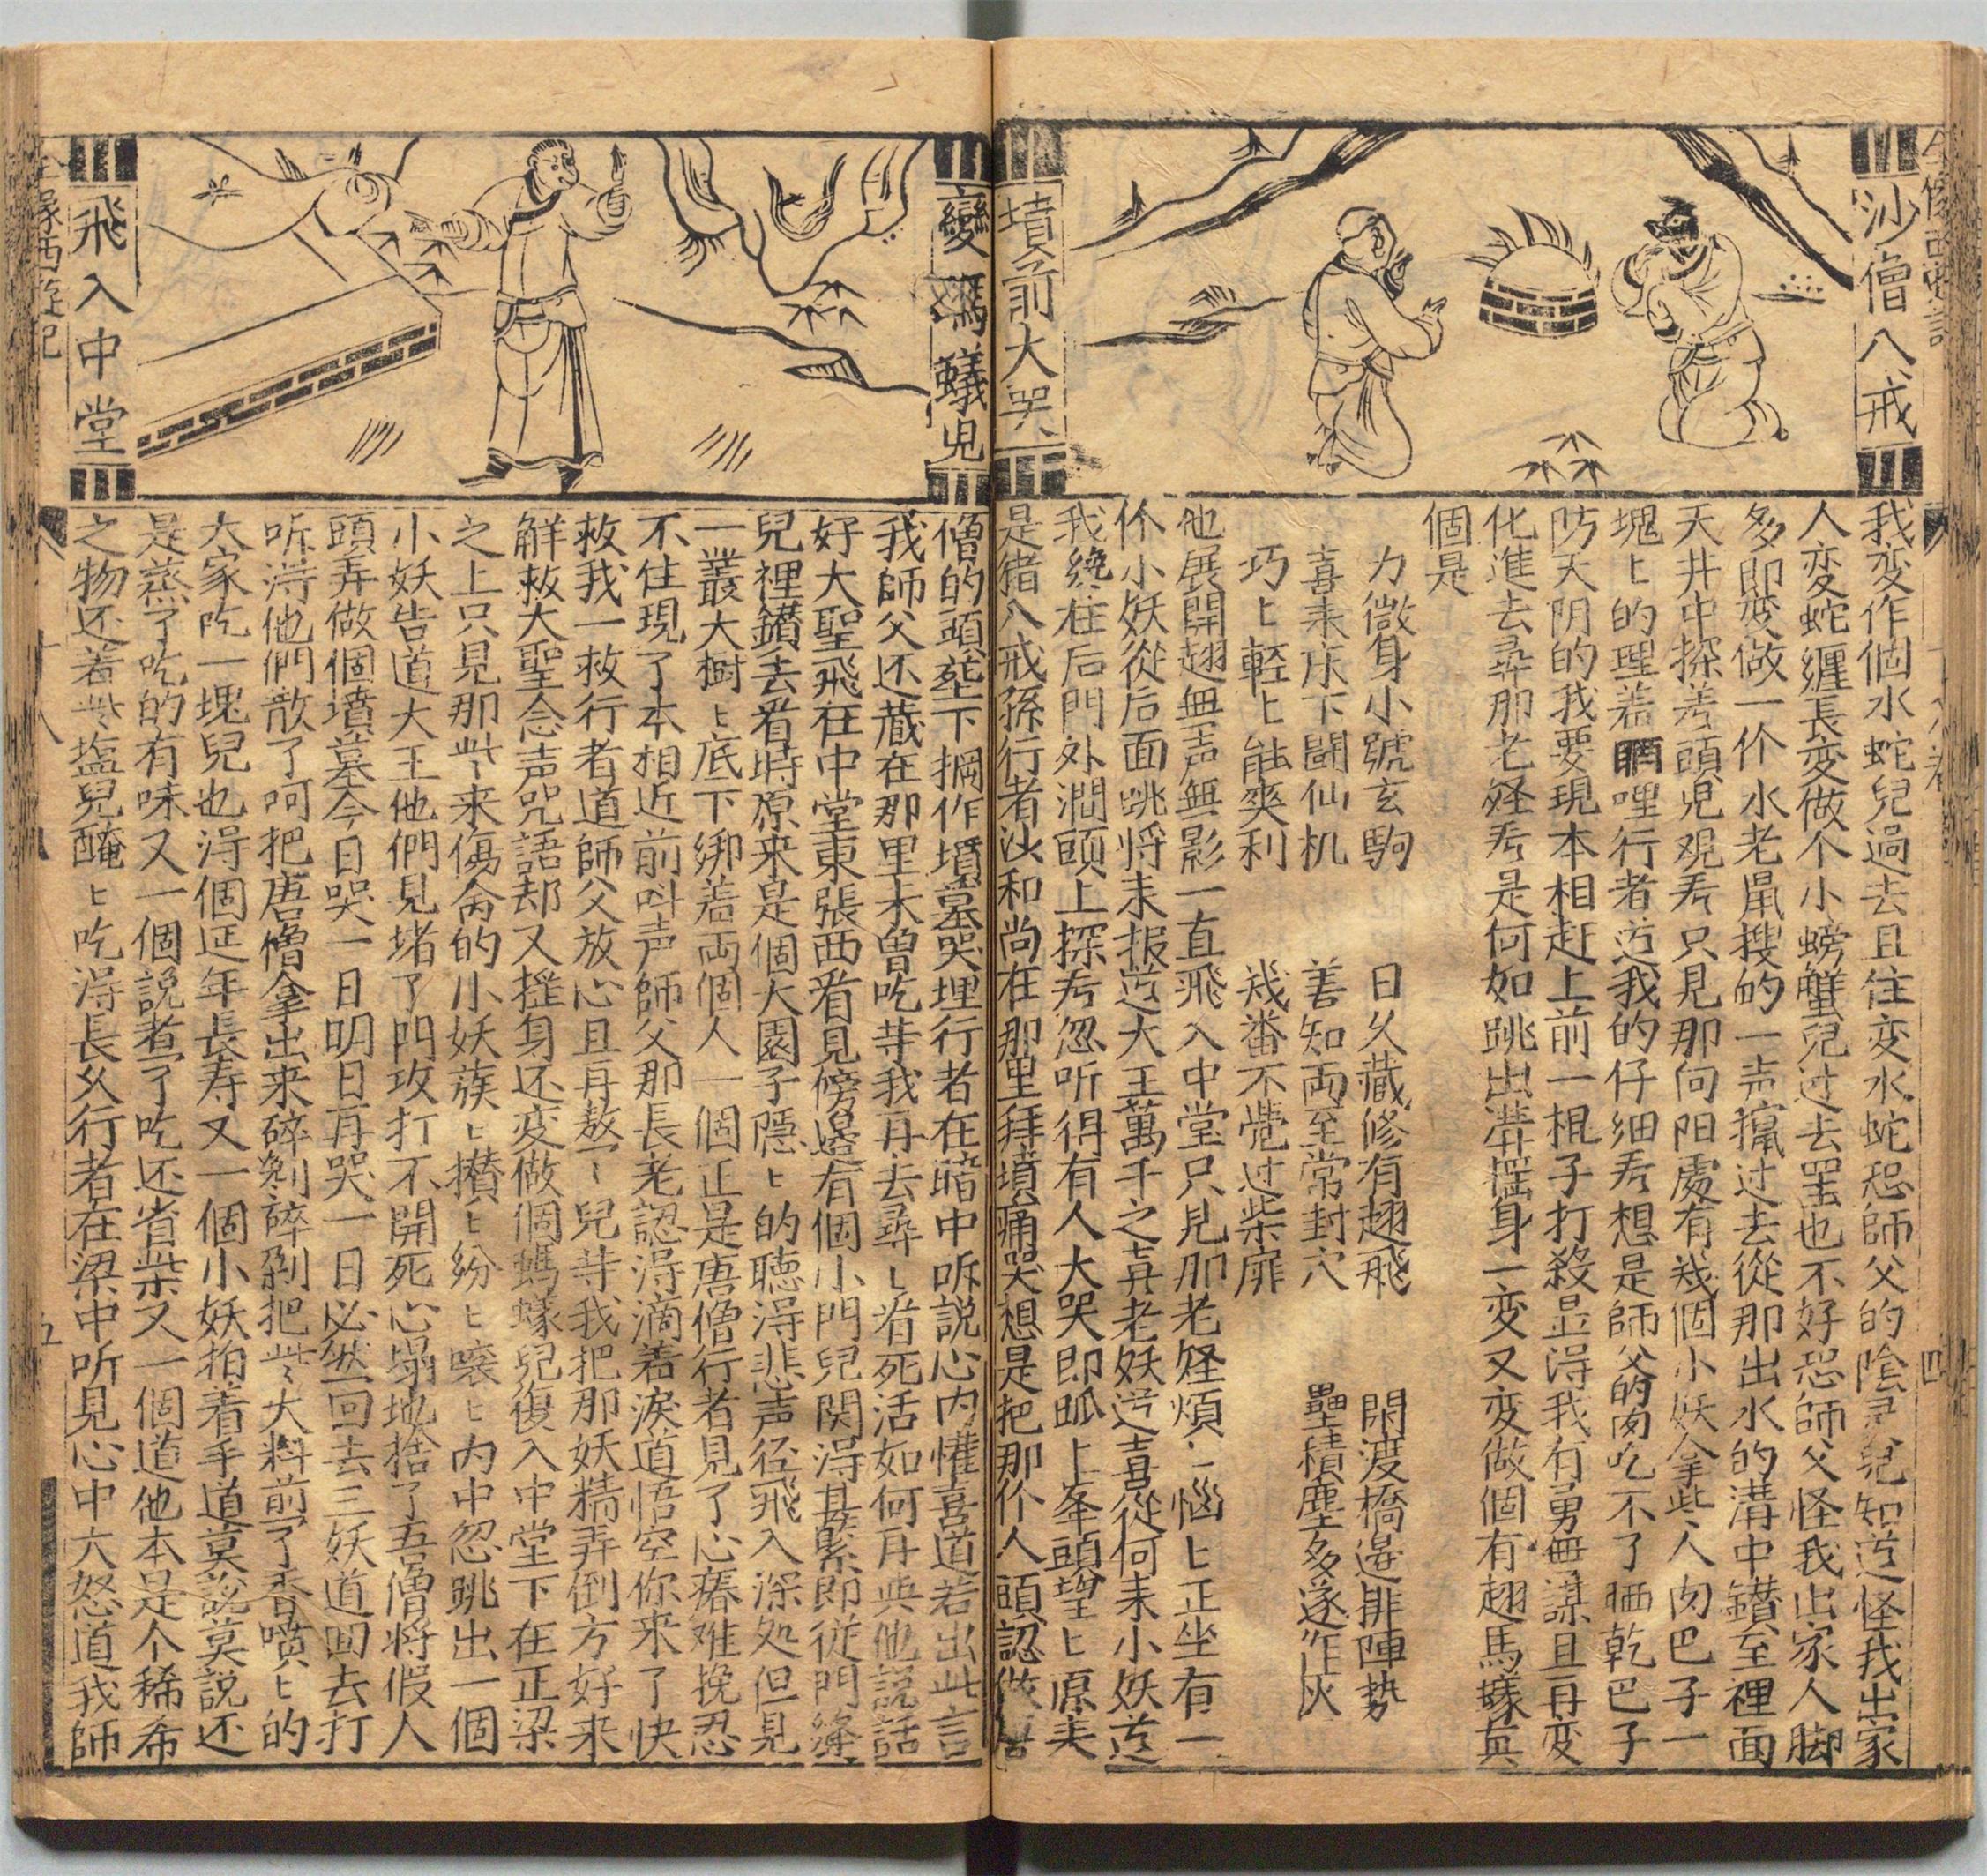 沙僧八戒
墳前大哭
我变作個水蛇兒過去且住变水蛇恐師父的陰灵兒知道怪我出家
人变蛇纒長变做个小螃蟹兒过去罢也不好恐師父怪我出家人脚
多即变做一个水老鼠搜的一声攛过去從那出水的溝中鑽至裡面
天井中探着頭児观看只見那向阳處有幾個小妖拿些人肉巴子一
塊匕的理着晒哩行者道我的仔細看想是師父的肉吃不了晒乾巴子
防天阴的我要現本相赶上前一棍子打殺显得我有勇無謀且再变
化進去尋那老怪看是何如跳出溝摇身一变又变做個有翅馬蟻真
個是
力微身小號玄駒 日久藏修有翅飛 閑渡橋邉排陣勢
喜来床下闘仙机 善知両至常封穴 壘積塵多遂作灰
巧匕軽匕能爽利 幾番不覺过柴扉
他展開翅無声無影一直飛入中堂只見那老怪煩匕惱匕正坐有一
个小妖從后面跳将来报道大王萬千之喜老妖道喜從何来小妖道
我纔在后門外澗頭上探看忽听得有人大哭即爬上峯頭望匕原来
是猪八戒孫行者沙和尚在那里拜墳痛哭想是把那个人頭認做唐
變螞蟻児
飛入中堂
僧的頭塟下搁作墳墓哭埋行者在暗中听説心内懽喜道若出此言
我師父还藏在那里未曾吃等我再去尋匕看死活如何再與他説話
好大聖飛在中堂東張西看見傍邉有個小門兒関得甚緊即從門縫
兒裡鑽去看時原来是個大園子隱匕的聴得悲声径飛入深処但見
一叢大樹匕底下綁着両個人一個正是唐僧行者見了心癢难挽忍
不住現了本相近前叫声師父那長老認得滴着淚道悟空你来了快
救我一救行者道師父放心且再熬匕兒等我把那妖精弄倒方好来
觧救大聖念声咒語却又摇身还变做個螞蟻兒復入中堂下在正梁
之上只見那些来傷侖的小妖蔟匕攅匕紛匕嚷匕内中忽跳出一個
小妖告道大王他們見堵了門攻打不開死心塌地捨了吾僧将假人
頭弄做個墳墓今日哭一日明日再哭一日必然回去三妖道回去打
听得他們散了呵把唐僧拿出来碎剁碎剁把些大料煎了香噴匕的
大家吃一塊兒也得個延年長寿又一個小妖拍着手道莫説莫説还
是蒸了吃的有味又一個説煮了吃还省柴又一個道他本是个稀希
之物还着些塩兒醃匕吃得長久行者在梁中听見心中大怒道我師